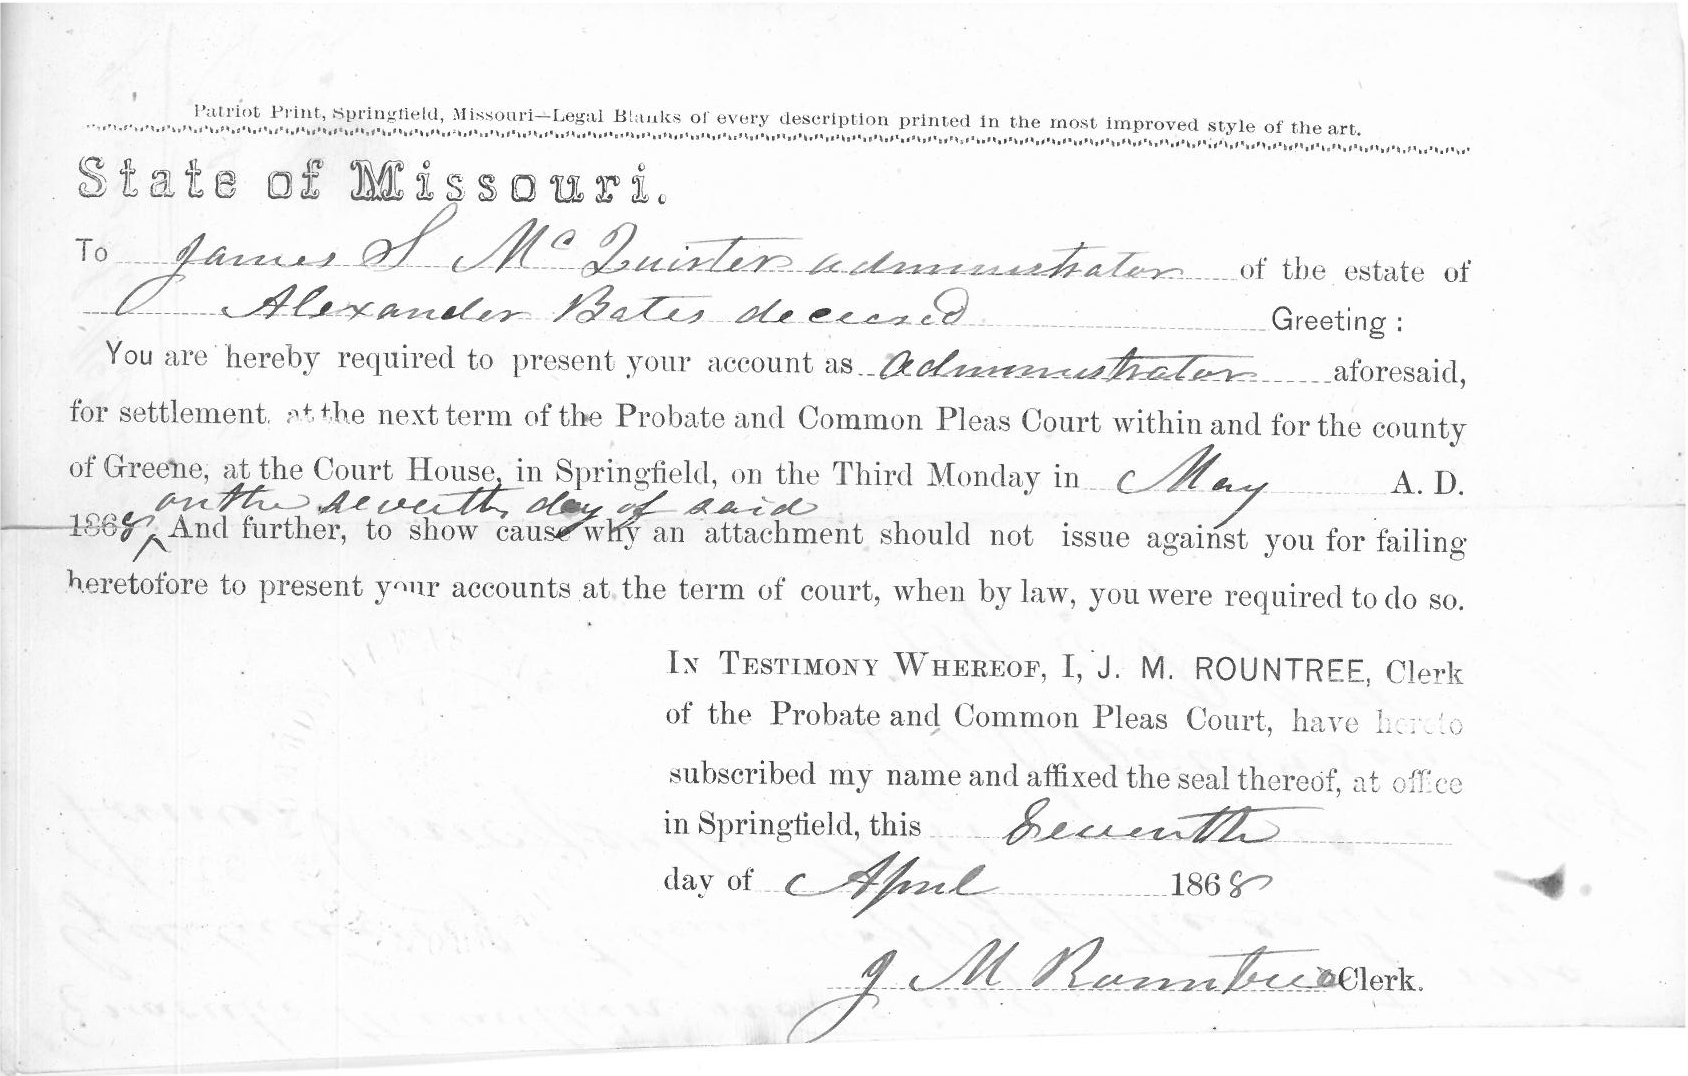 Patriot Print, Springfield, Missouri—Legal Blanks of every description printed in the most improved style of the art.
State of Missouri.
To James S McQuister administrator of the estate of
Alexander Bates deceased Greeting:
You are hereby required to present your account as administrator aforesaid,
for settlement, at the next term of the Probate and Common Pleas Court within and for the county
of Greene, at the Court House, in Springfield, on the Third Monday in May A. D.
on the seventh day of said
1868 ^ And further, to show cause why an attachment should not issue against you for failing
heretofore to present your accounts at the term of court, when by law, you were required to do so.
In Testimony Whereof, I, J. M. ROUNTREE, Clerk
of the Probate and Common Pleas Court, have hereto
subscribed my name and affixed the seal thereof, at office
in Springfield, this Seventh
day of April 1868
J M Rountree Clerk.